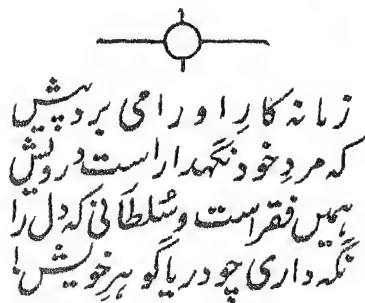 زمانہ کارِ او را می برد پیش
کہ مردِ خود نگہدار است درویش
ہمیں فقر است و سُلطانی کہ دل را
نگہ داری چو دریا گوہرِ خویش!